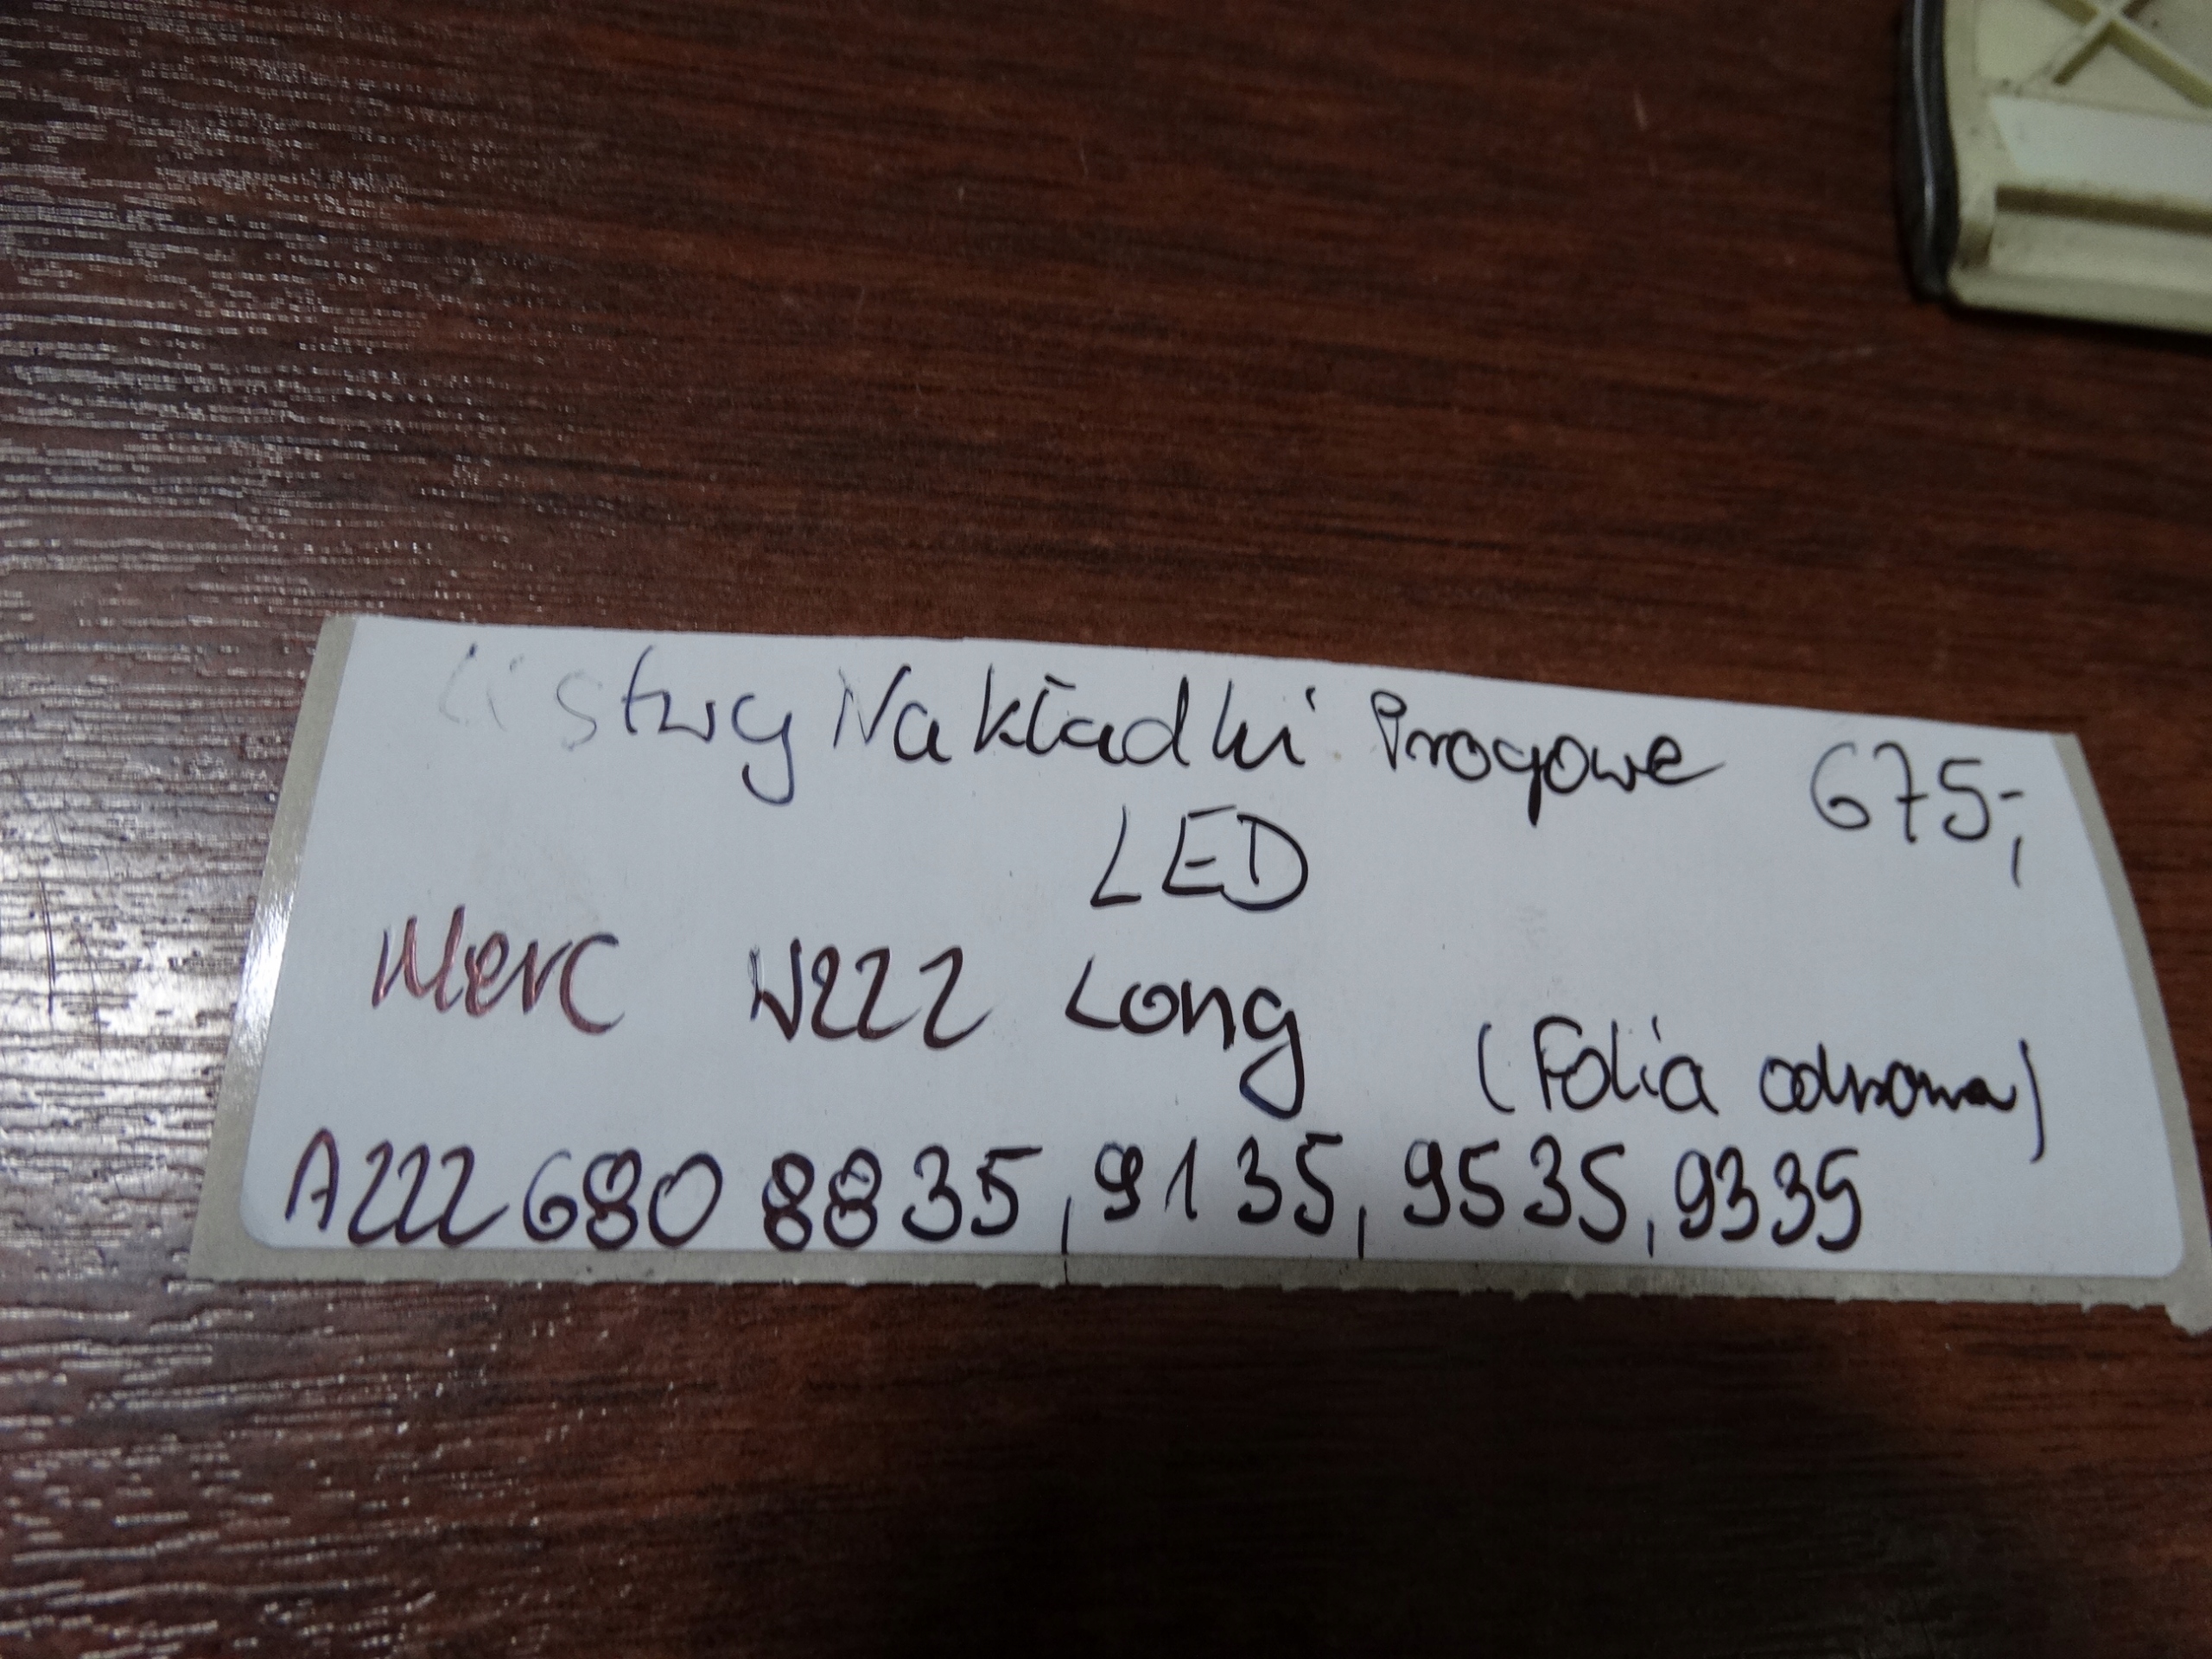 Listwy Nakładki Progowe 675,-
LED
Merc W222 Long
(Folia ochronna)
A222 680 8835, 9135, 9535, 9335